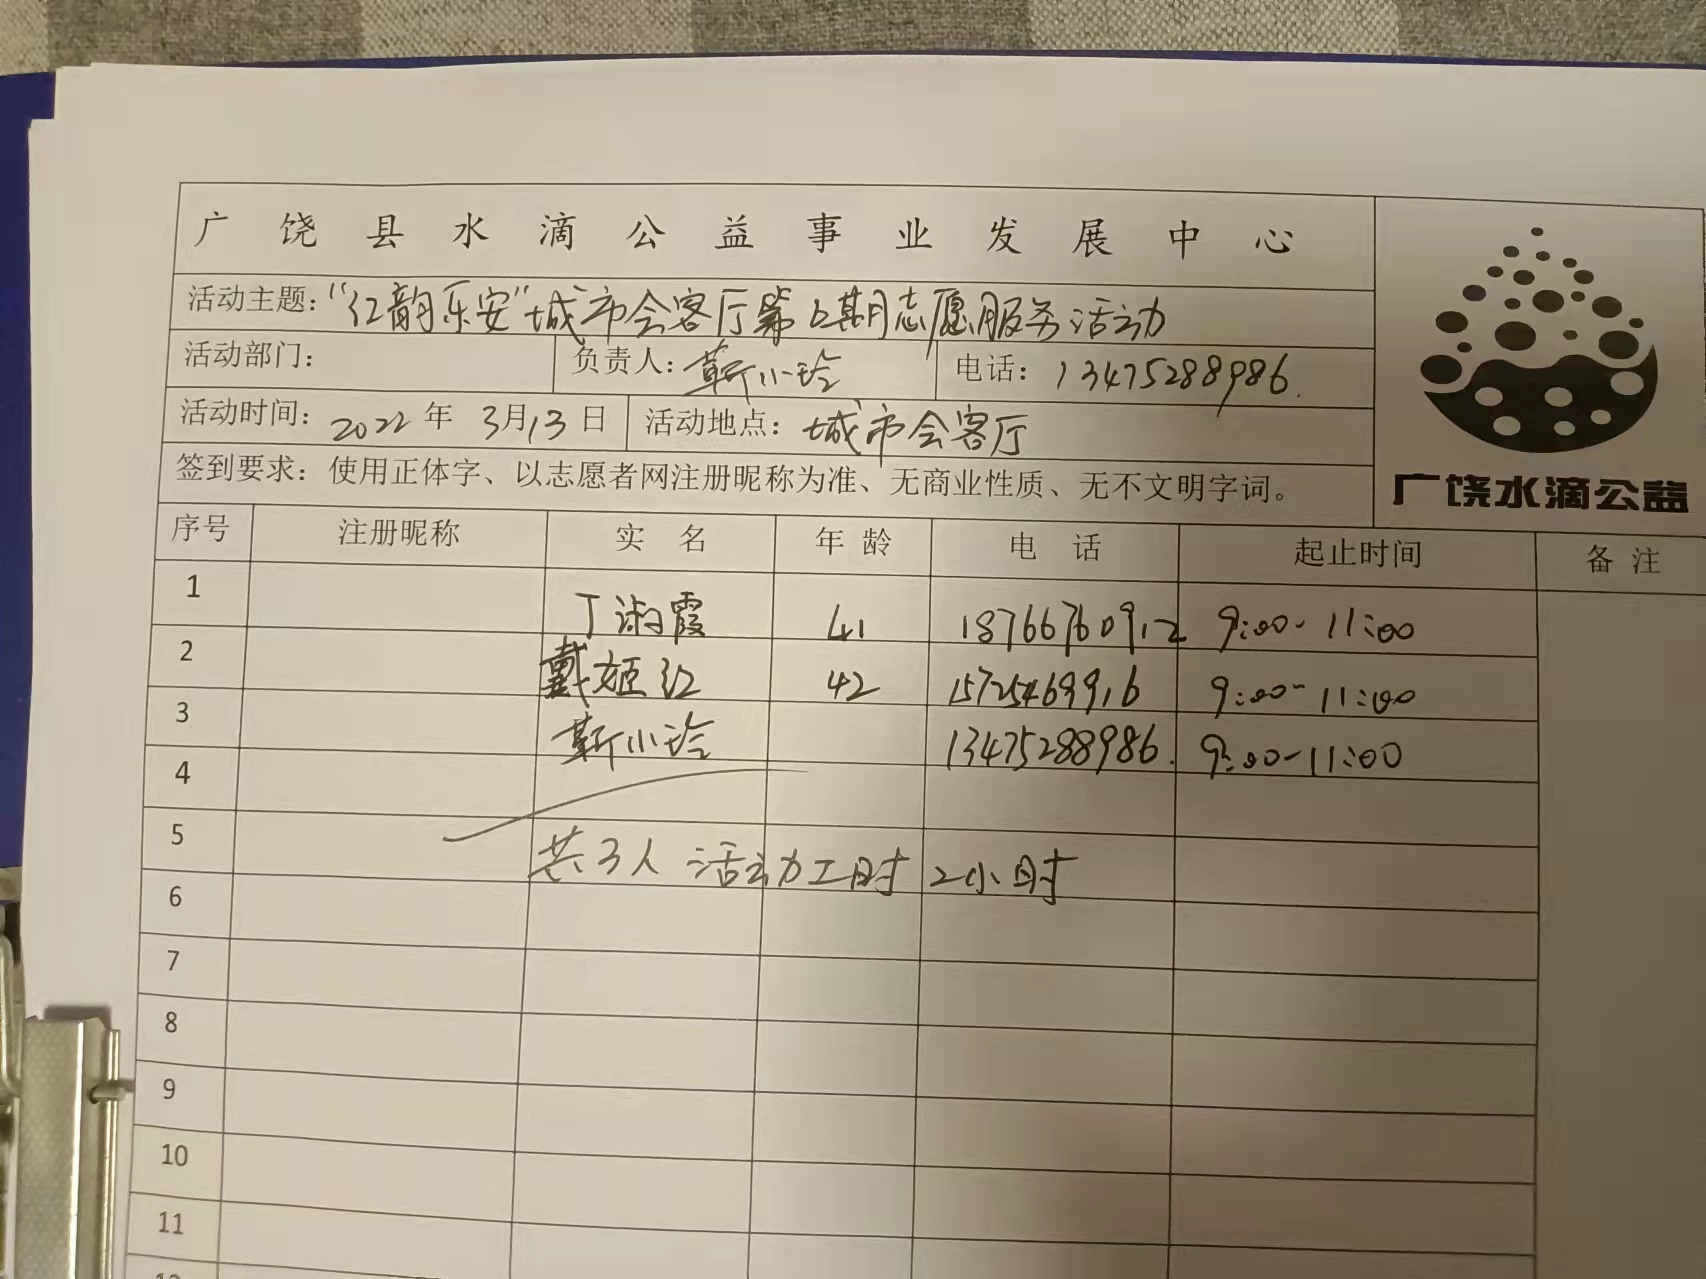 广饶县水滴公益事业发展中心
活动主题："红韵乐安"城市会客厅第2期志愿服务活动
活动部门： 负责人：靳小玲 电话：13475288986.
活动时间：2022年 3月13日 活动地点：城市会客厅
签到要求：使用正体字、以志愿者网注册昵称为准、无商业性质、无不文明字词。
广饶水滴公益
序号 注册昵称 实名 年龄 电话 起止时间 备注
1 丁淑霞 41 18766760912 9:00-11:00
2 戴姬红 42 15725469916 9:00-11:00
3 靳小玲 13475288986. 9:00-11:00
4
5 共3人 活动工时 2小时
6
7
8
9
10
11